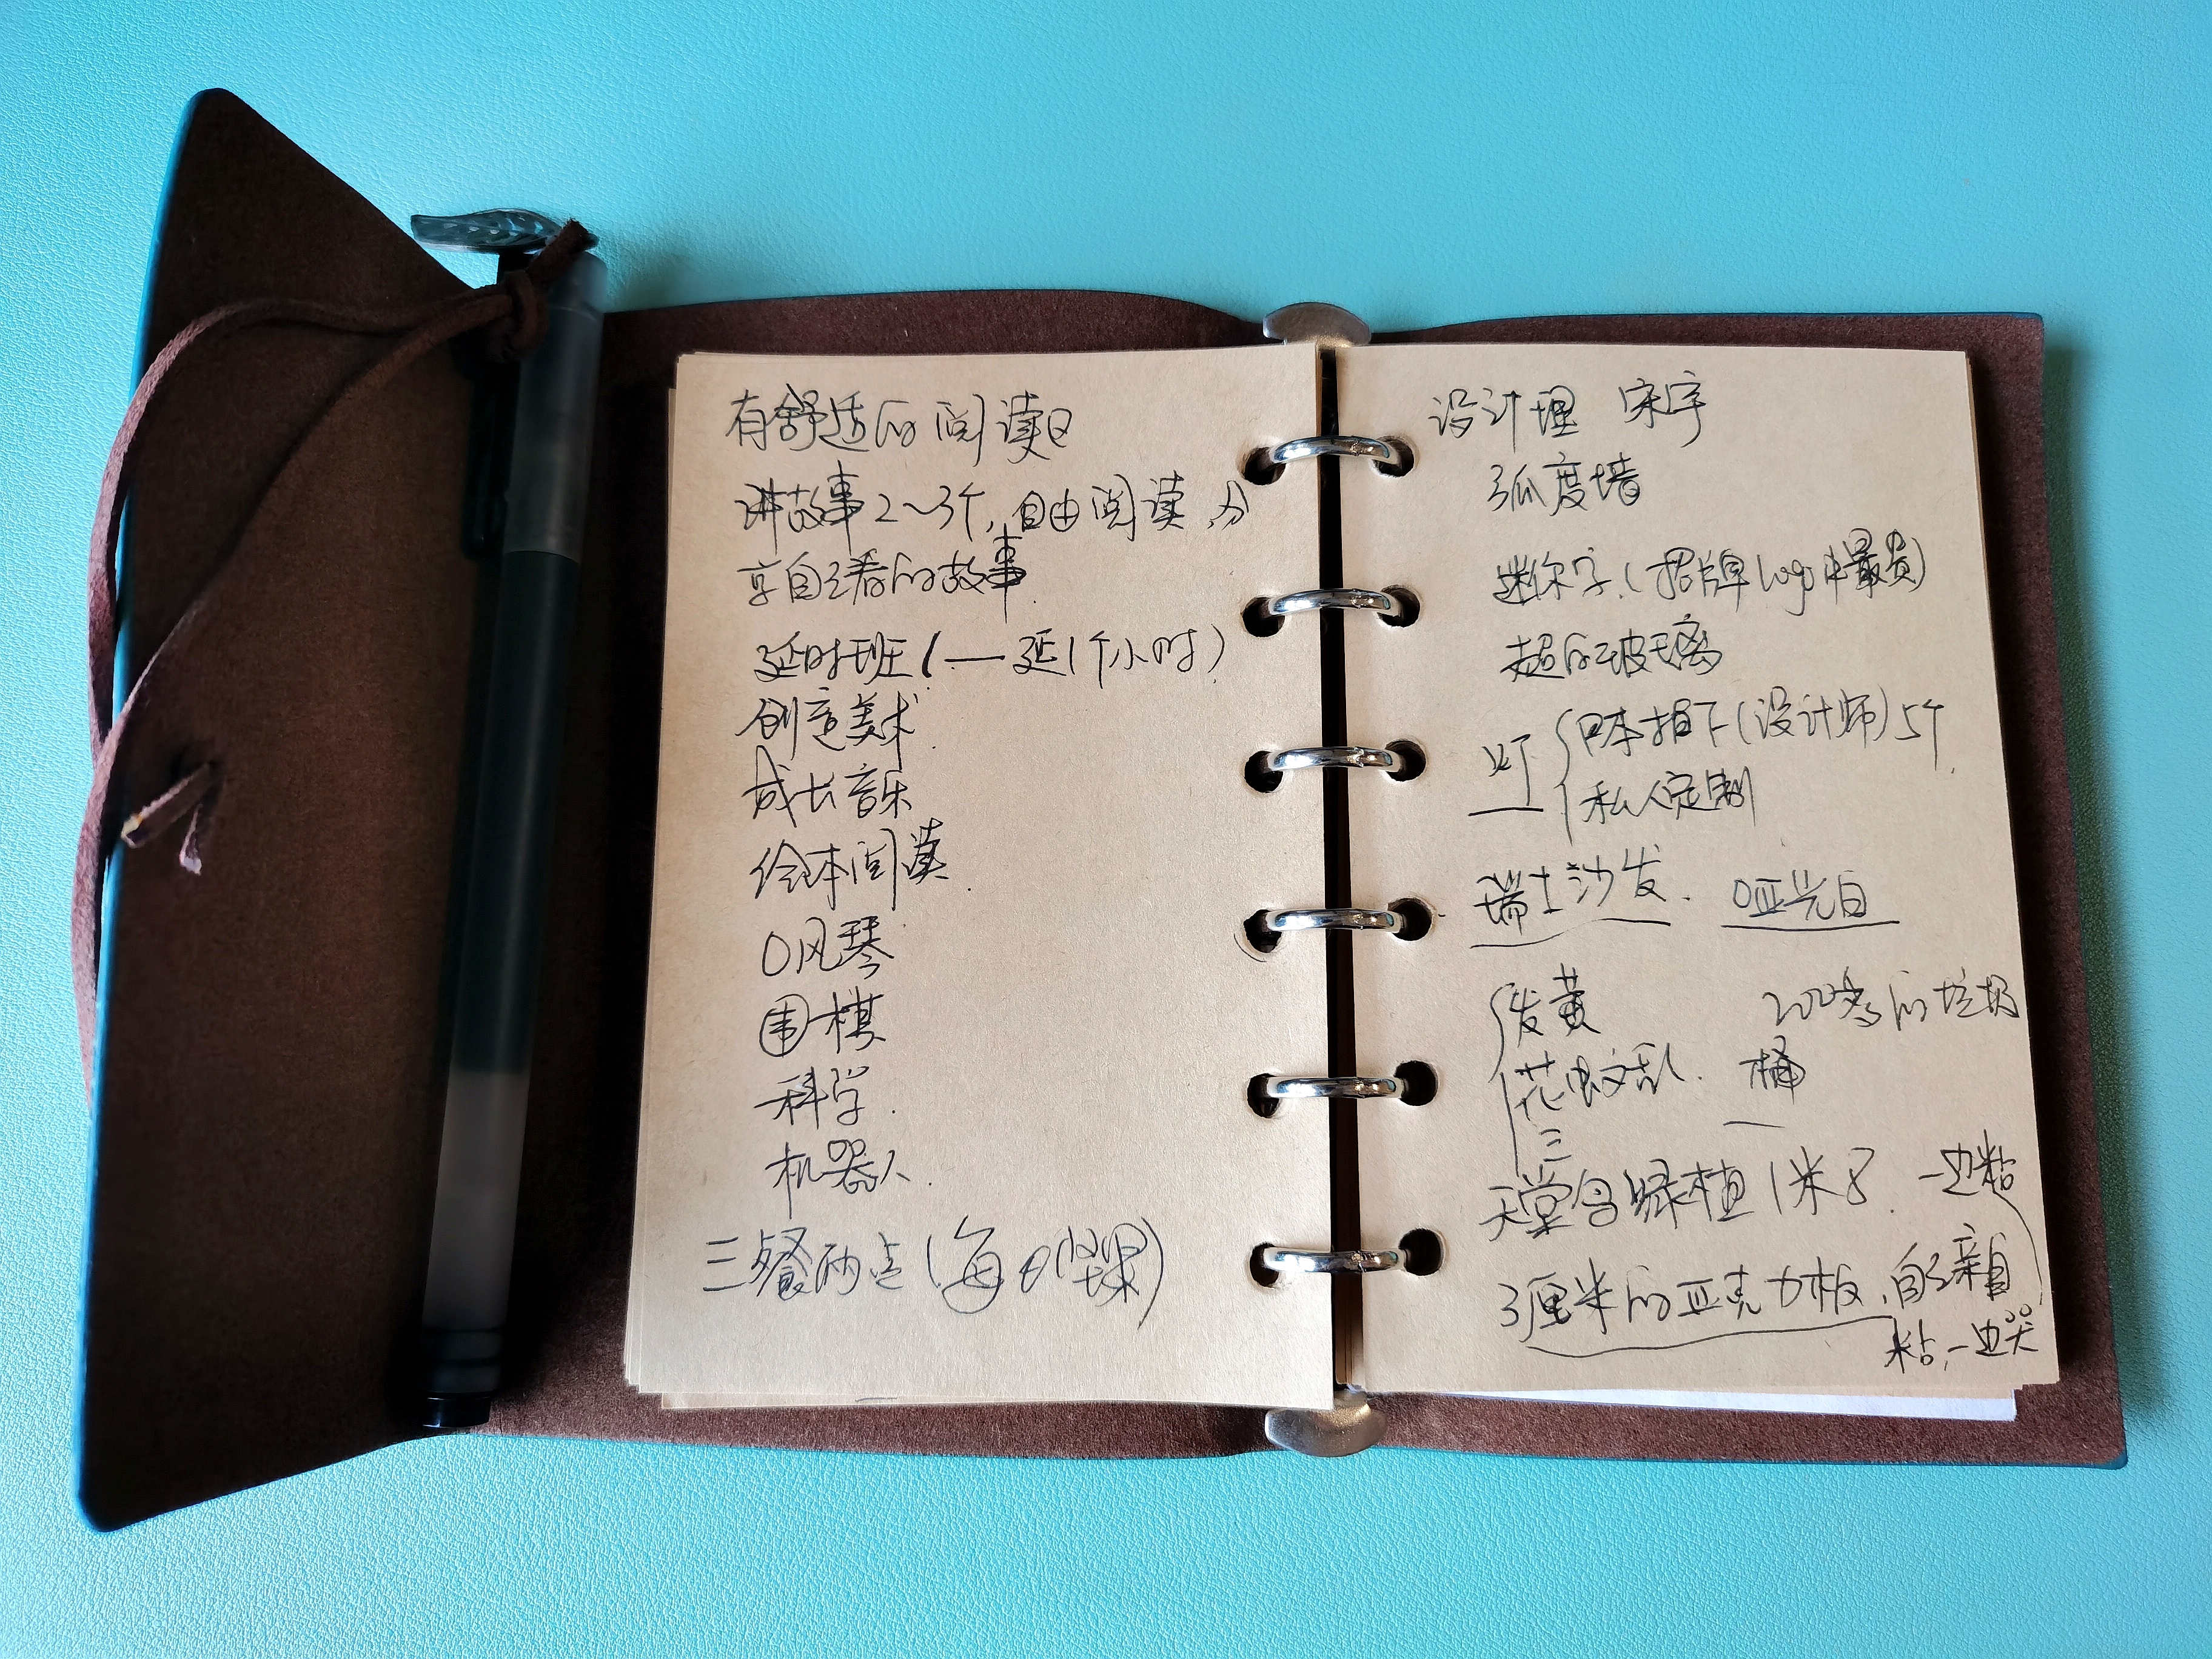 有舒适的阅读区
讲故事2～3个，自由阅读，分
享自己看的故事
延时班（——延1个小时）
创意美术
成长音乐
绘本阅读
口风琴
围棋
科学
机器人
三餐两点（每日坚果）
设计理 宋宇
弧度墙
迷你字（招牌logo 最贵）
超白玻璃
灯 日本拍下（设计师）5个
私人定制
瑞士沙发. 哑光白
发黄 200多的垃圾
花 乱. 桶
三
天堂鸟绿植1米8 一边粘
3厘米的亚克力板，自己亲自
粘，一边哭